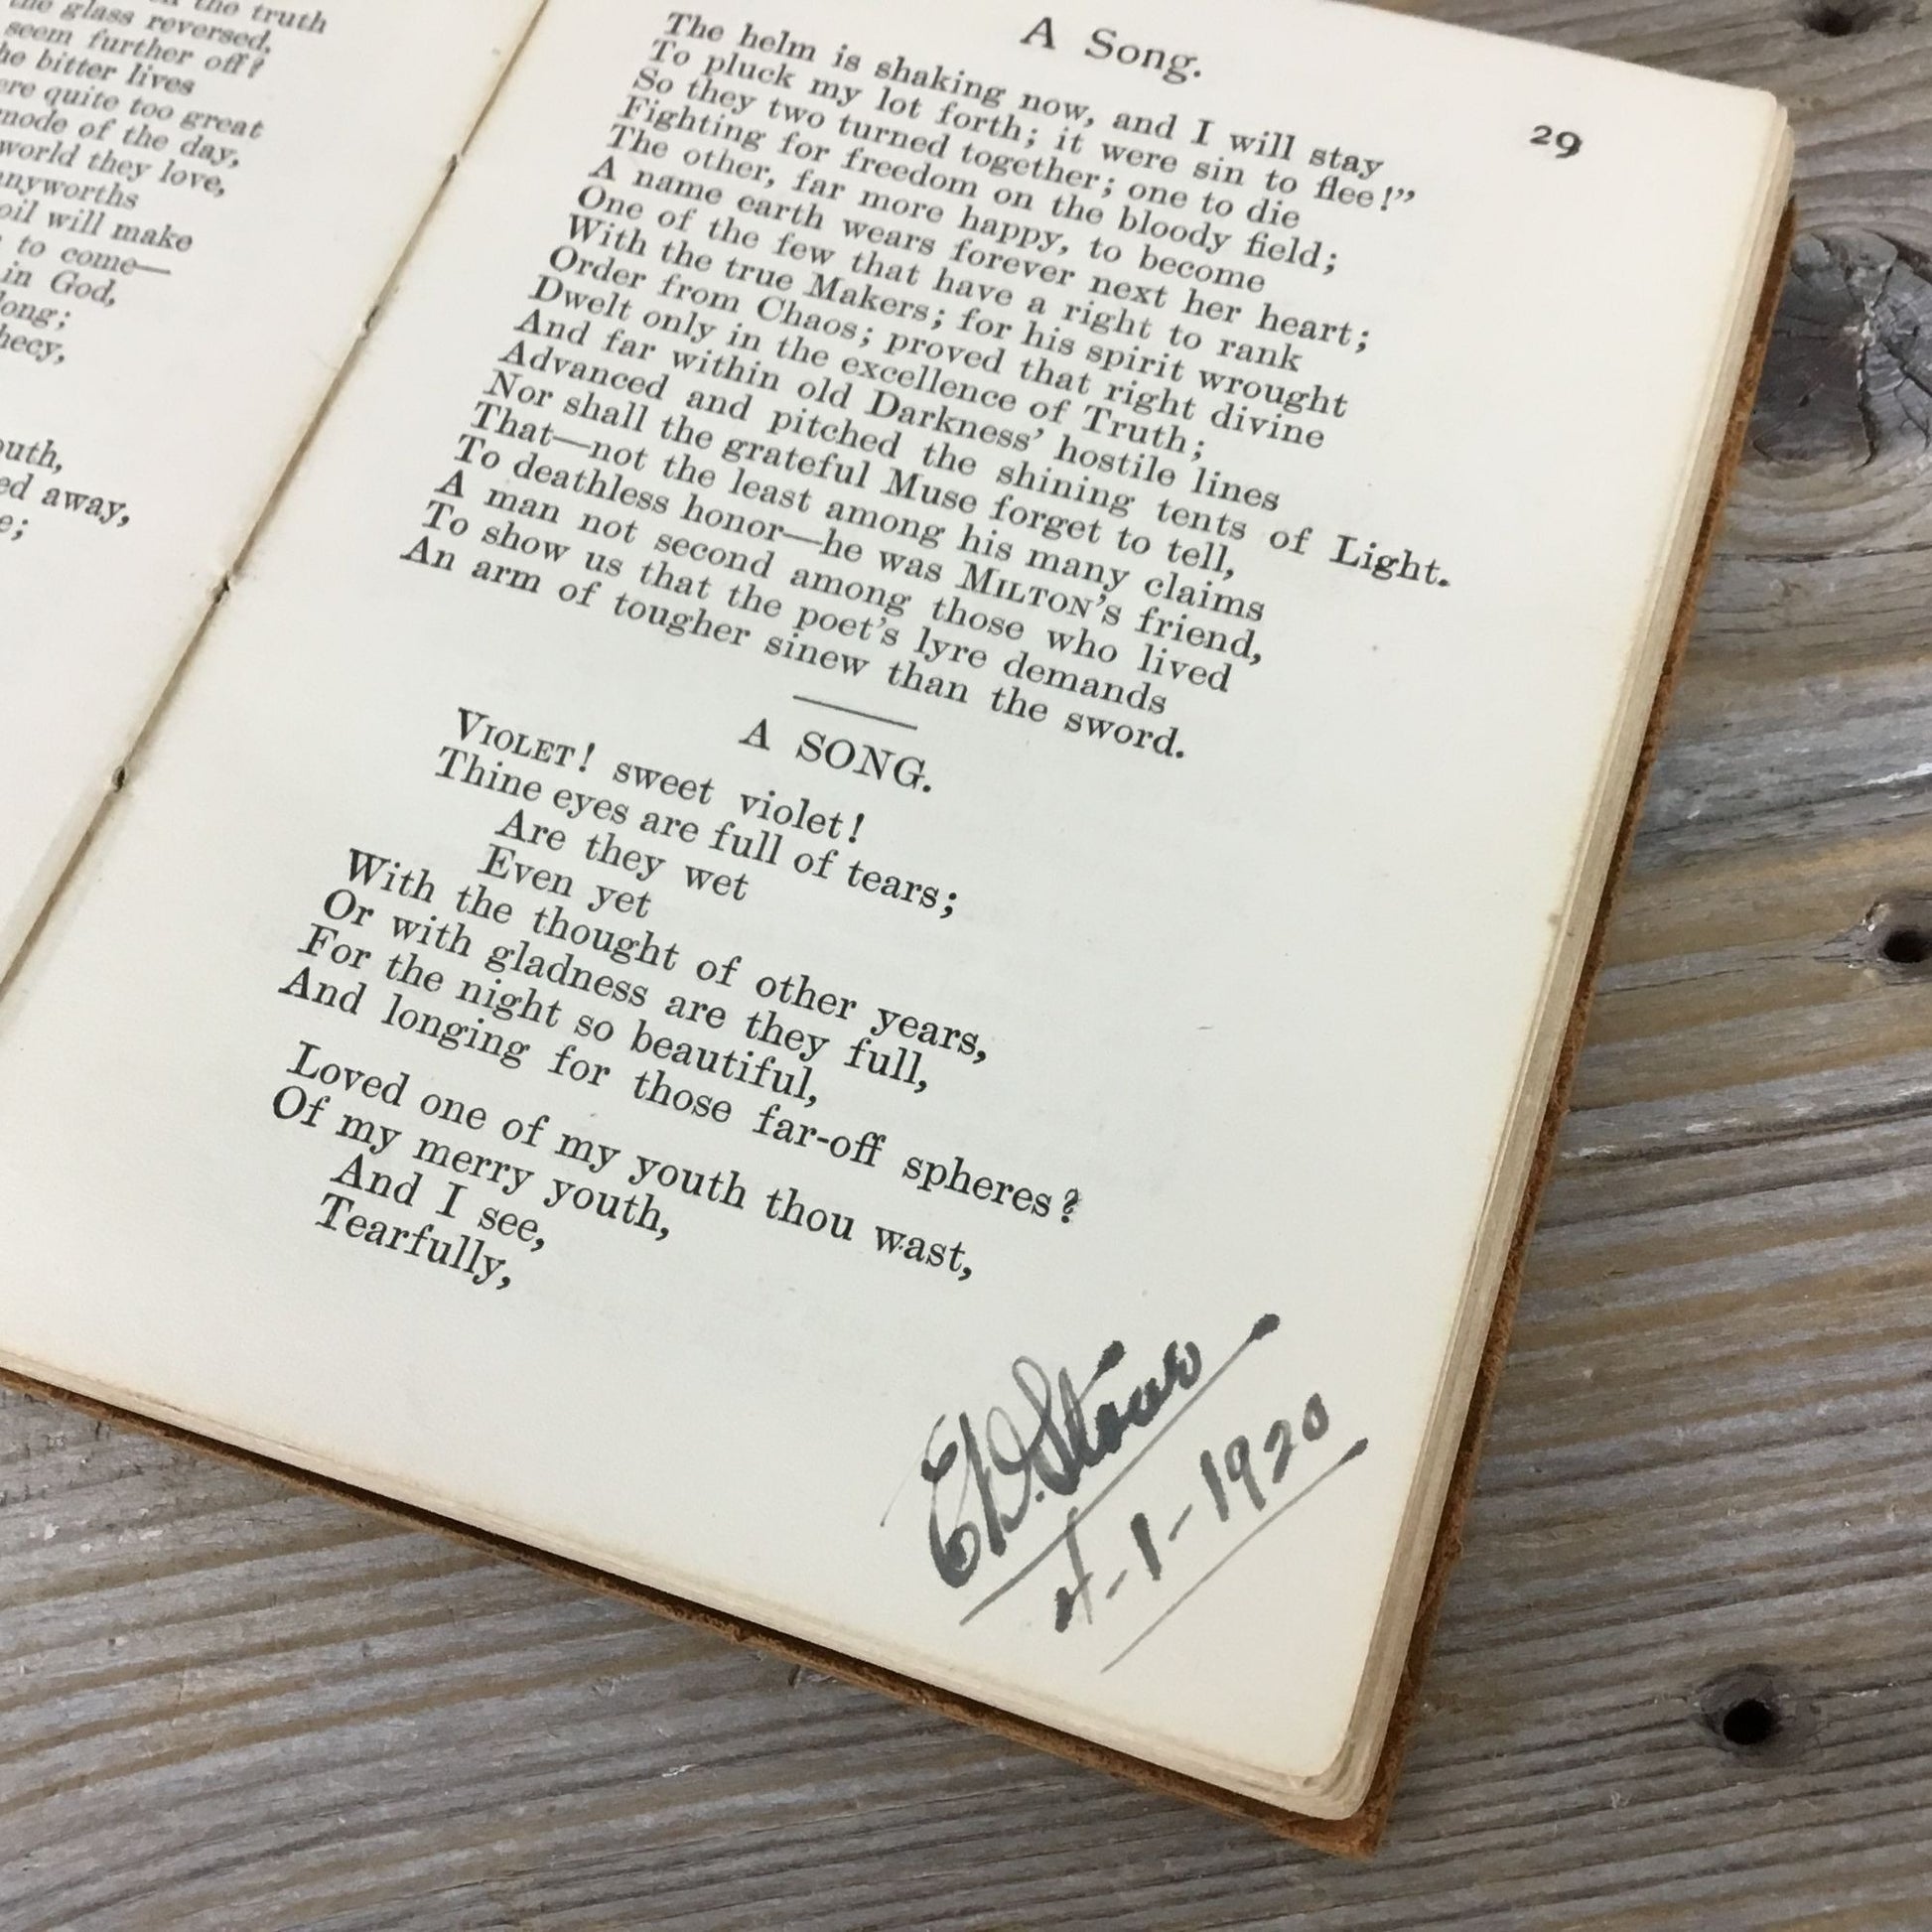 the truth
the glass reversed,
seem further off?
he bitter lives
ere quite too great
mode of the day,
world they love,
nyworths
oil will make
to come—
in God,
long;
hecy,
outh,
ed away,
e;
A Song.
29
The helm is shaking now, and I will stay
To pluck my lot forth; it were sin to flee!”
So they two turned together; one to die
Fighting for freedom on the bloody field;
The other, far more happy, to become
A name earth wears forever next her heart;
One of the few that have a right to rank
With the true Makers; for his spirit wrought
Order from Chaos; proved that right divine
Dwelt only in the excellence of Truth;
And far within old Darkness’ hostile lines
Advanced and pitched the shining tents of Light.
Nor shall the grateful Muse forget to tell,
That—not the least among his many claims
To deathless honor—he was MILTON’S friend,
A man not second among those who lived
To show us that the poet’s lyre demands
An arm of tougher sinew than the sword.
A SONG.
VIOLET! sweet violet!
Thine eyes are full of tears;
Are they wet
Even yet
With the thought of other years,
Or with gladness are they full,
For the night so beautiful,
And longing for those far-off spheres?
Loved one of my youth thou wast,
Of my merry youth,
And I see,
Tearfully,
4-1-1920